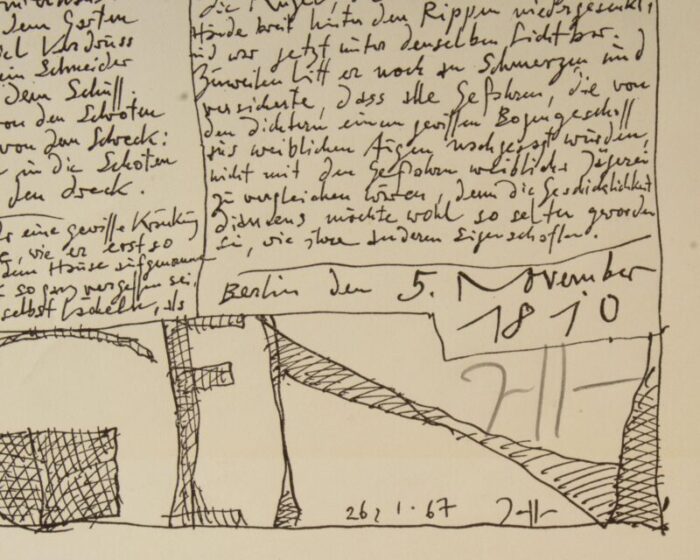 dem Garten
Verdruss
ein Schneider
dem Schuß.
von den Schroten
von dem Schreck:
in die Schoten
den Dreck.
eine gewisse Kränkung
, wie er erst so
dem Hause aufgenommen
so ganz vergessen sei,
selbst lächeln, als
die Kugel,
Hände breit hinter den Rippen niedergesenkt,
und war jetzt unter denselben sichtbar.
Zuweilen litt er noch an Schmerzen und
versicherte, dass alle Gefahren, die von
den Dichtern einem gewissen Bogengeschoss
aus weiblichen Augen nachgesagt würden,
nicht mit den Gefahren weiblicher Jägerei
zu vergleichen wären, denn die Geschicklichkeit
Dianens möchte wohl so selten geworden
sei, wie ihre anderen Eigenschaften.
Berlin den 5. November
1810
26, 1. 67